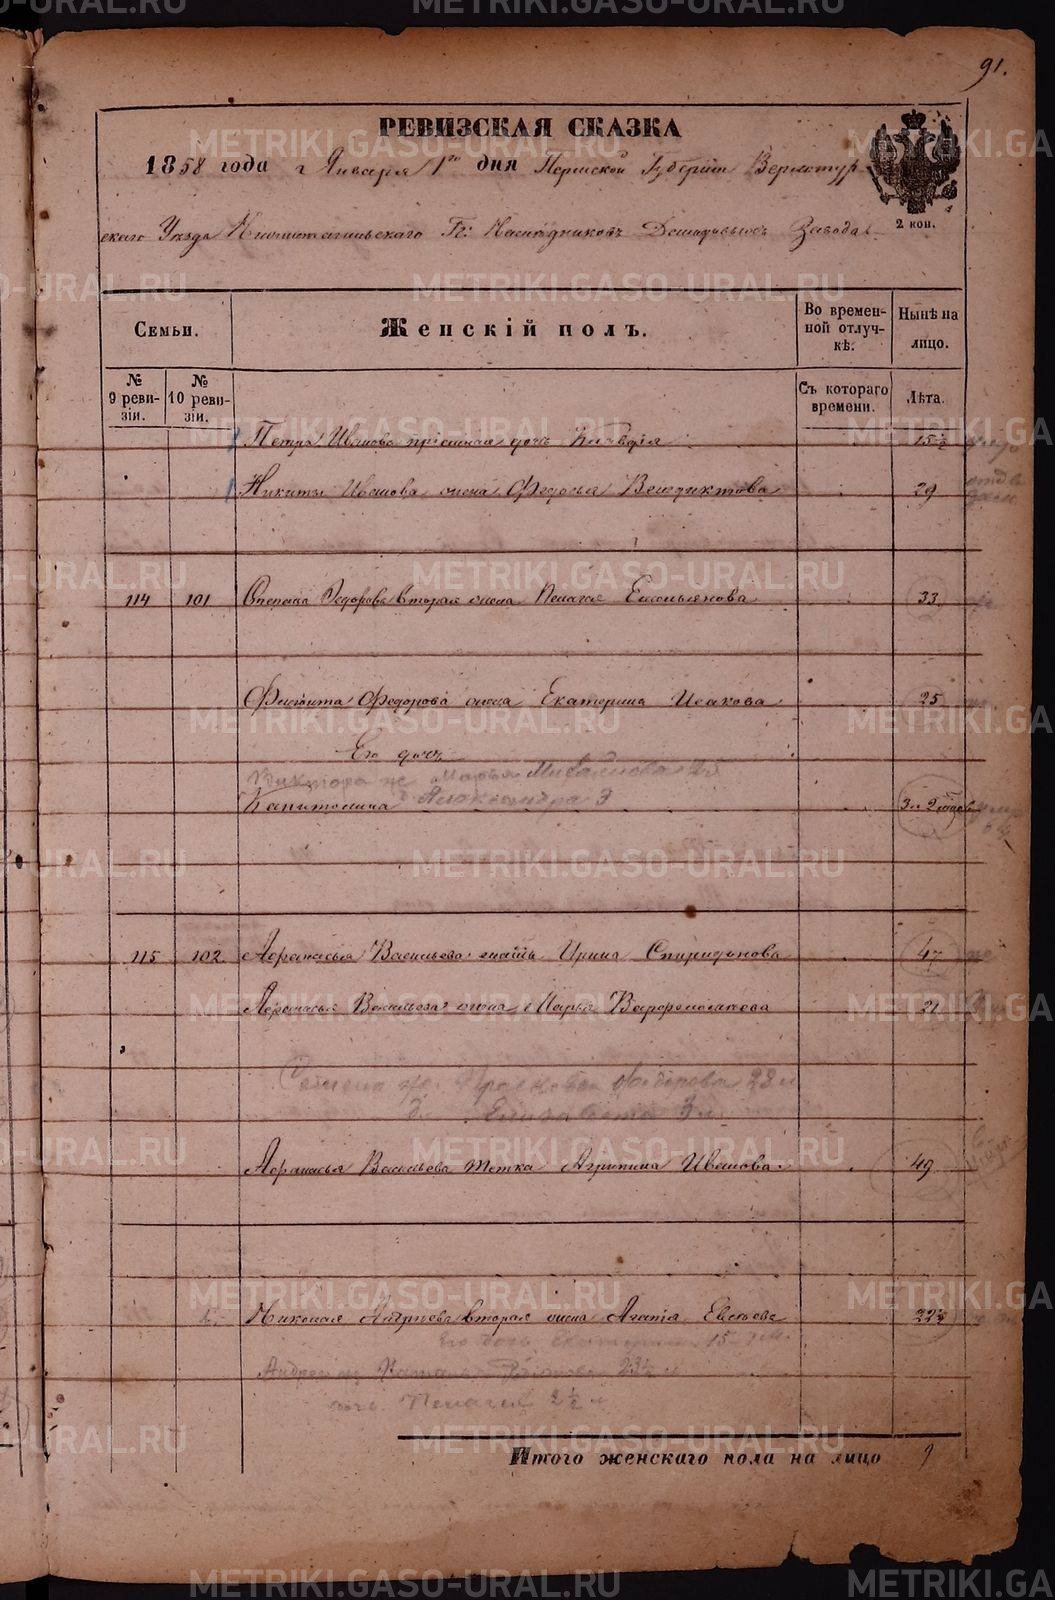 91.
РЕВИЗСКАЯ СКАЗКА
1858 года Января 1го дня Пермской Губернiи Верхотур
скаго Уѣзда Нижнетагильскаго Гг: Наслѣдниковъ Демидовыхъ Завода
2 коп.
Семьи.
Женскiй полъ.
Во времен-
ной отлуч-
кѣ.
Нынѣ на
лицо.
№
9 реви-
зiи.
№
10 реви-
зiи.
Съ котораго
времени.
Лѣта.
Петра Иванова прiемная дочь Клавдiя 15½
Никиты Иванова жена Федосья Венедиктова 29
114 101 Степана Федорова вторая жена Пелагея Емельянова 33
Федорова жена Екатерина Исакова 25
Его дочь
Виктора ж Марья
Капитолина Александра 3 3
115 102 Афанасья Васильева мать Ирина Спиридонова 47
Афанасья Васильева жена Марья Варфоломеева 21
Семена ж. Прасковья Федорова 23 л
д. Елизавета 3 л
Афанасья Васильева тетка Агрипина Иванова 49
Николая вторая жена Агапiя Евсѣева 22½
Его дочь 15
Андрея ж 23½ л
дочь Пелагея 2½ л
Итого женскаго пола на лицо 9
METRIKI.GASO-URAL.RU